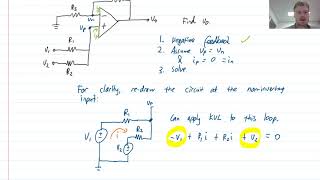 R3
Vn
Vo
Find Vo.
Vp
V1
R1
V2
R2
1. Negative feedback ✓
2. Assume Vp = Vn
& ip = 0 = in
3. Solve
For clarity, re-draw the circuit at the non-inverting
input:
Vp
R1
R2
V1
i
V2
Can apply KVL to this loop.
-V1 + R1i + R2i + V2 = 0